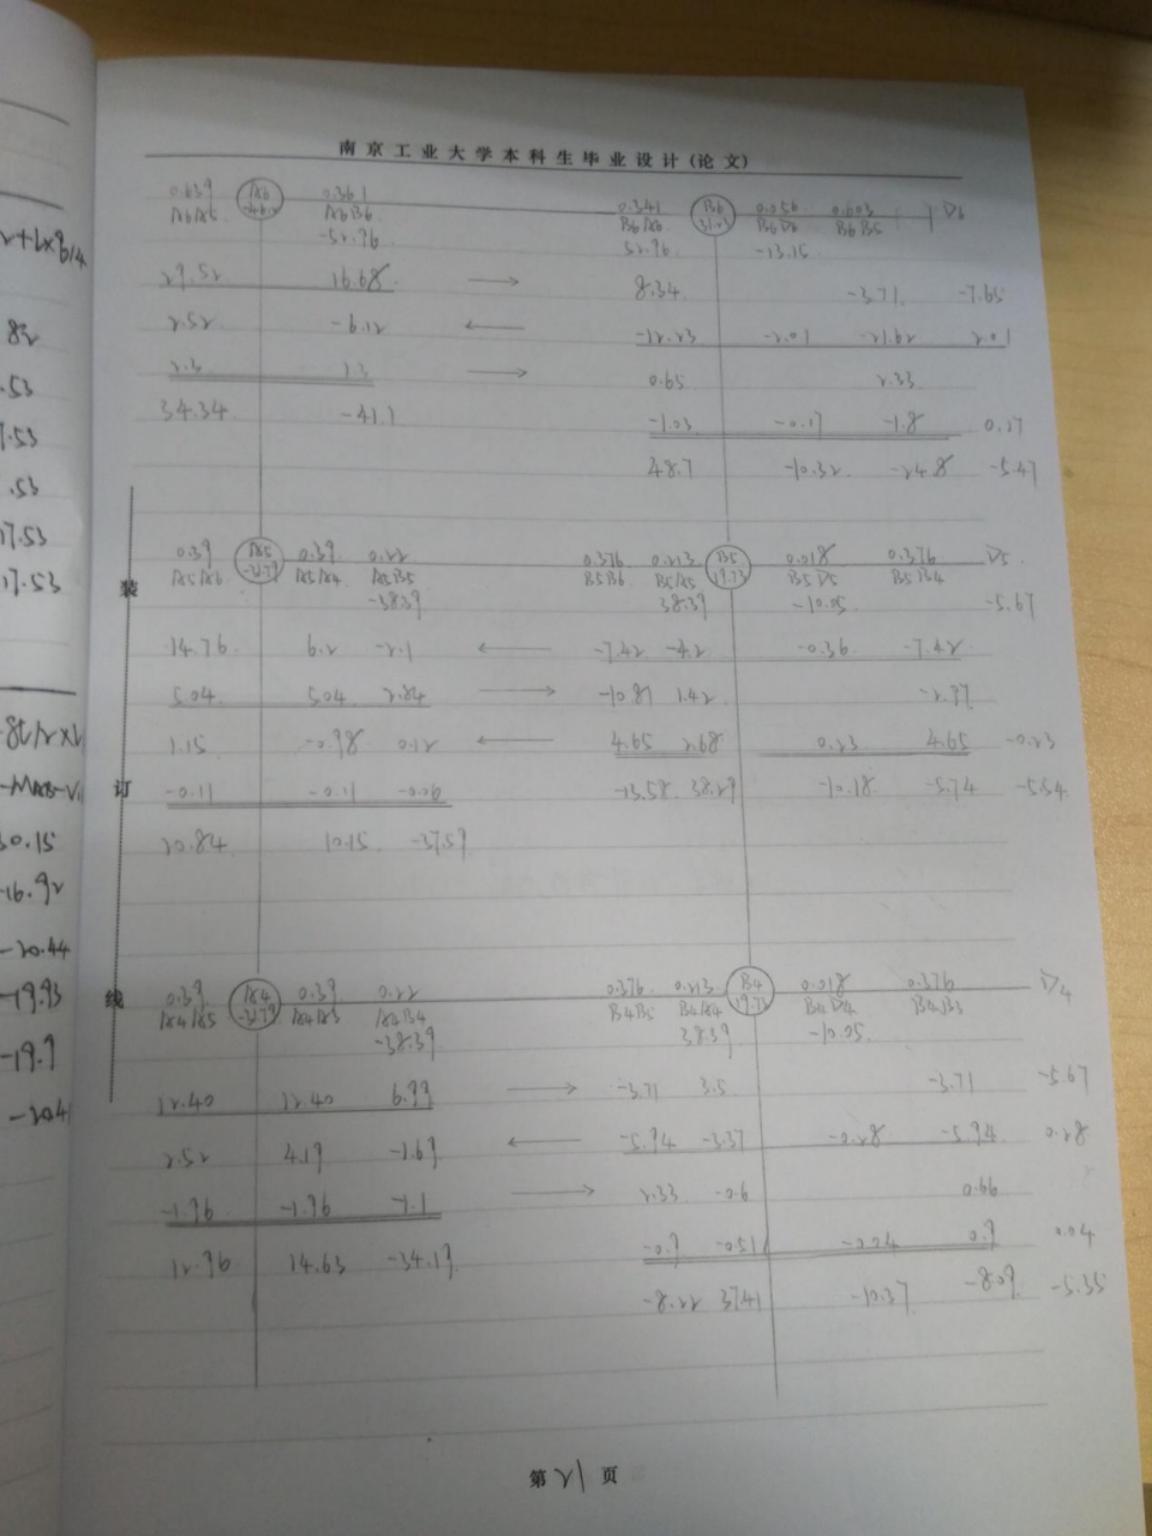 南京工业大学本科生毕业设计(论文)
0.639 A6 0.361 0.341 B6 0.056 0.603 D6
A6A5 A6B6 B6A6 31.23 B6D6 B6B5
-52.96 52.96 -13.15
29.52 16.68 → 8.34 -3.71 -7.65
2.52 -6.12 ← -12.23 -2.01 -21.62 2.01
2.3 1.3 → 0.65 2.33
34.34 -41.1 -1.03 -0.17 -1.8 0.17
48.7 -10.32 -24.8 -5.47
0.39 A5 0.39 0.22 0.376 0.213 B5 0.018 0.376 D5
A5A6 A5A4 A5B5 B5B6 B5A5 19.73 B5D5 B5B4
-38.39 38.39 -10.05 -5.67
14.76 6.2 -2.1 ← -7.42 -4.2 -0.36 -7.42
5.04 5.04 2.84 → -10.81 1.42 -2.97
1.15 -0.98 0.12 ← 4.65 2.68 0.23 4.65 -0.23
-0.11 -0.11 -0.06 -13.58 38.29 -10.18 -5.74 -5.54
20.84 10.15 -37.59
0.39 A4 0.39 0.22 0.376 0.213 B4 0.018 0.376 D4
A4A5 A4A3 A4B4 B4B5 B4A4 19.73 B4D4 B4B3
-38.39 38.39 -10.05
12.40 12.40 6.99 → -3.71 3.5 -3.71 -5.67
2.52 4.19 -1.69 ← -5.94 -3.37 -0.28 -5.94 0.28
-1.96 -1.96 -1.1 → 2.33 -0.6 0.66
12.96 14.63 -34.19 -0.9 -0.51 -0.04 0.9 0.04
-8.22 37.41 -10.37 -8.09 -5.35
装
订
线
第21页
82
.53
7.53
.53
17.53
17.53
30.15
-16.92
-20.44
-19.93
-19.9
-20.4